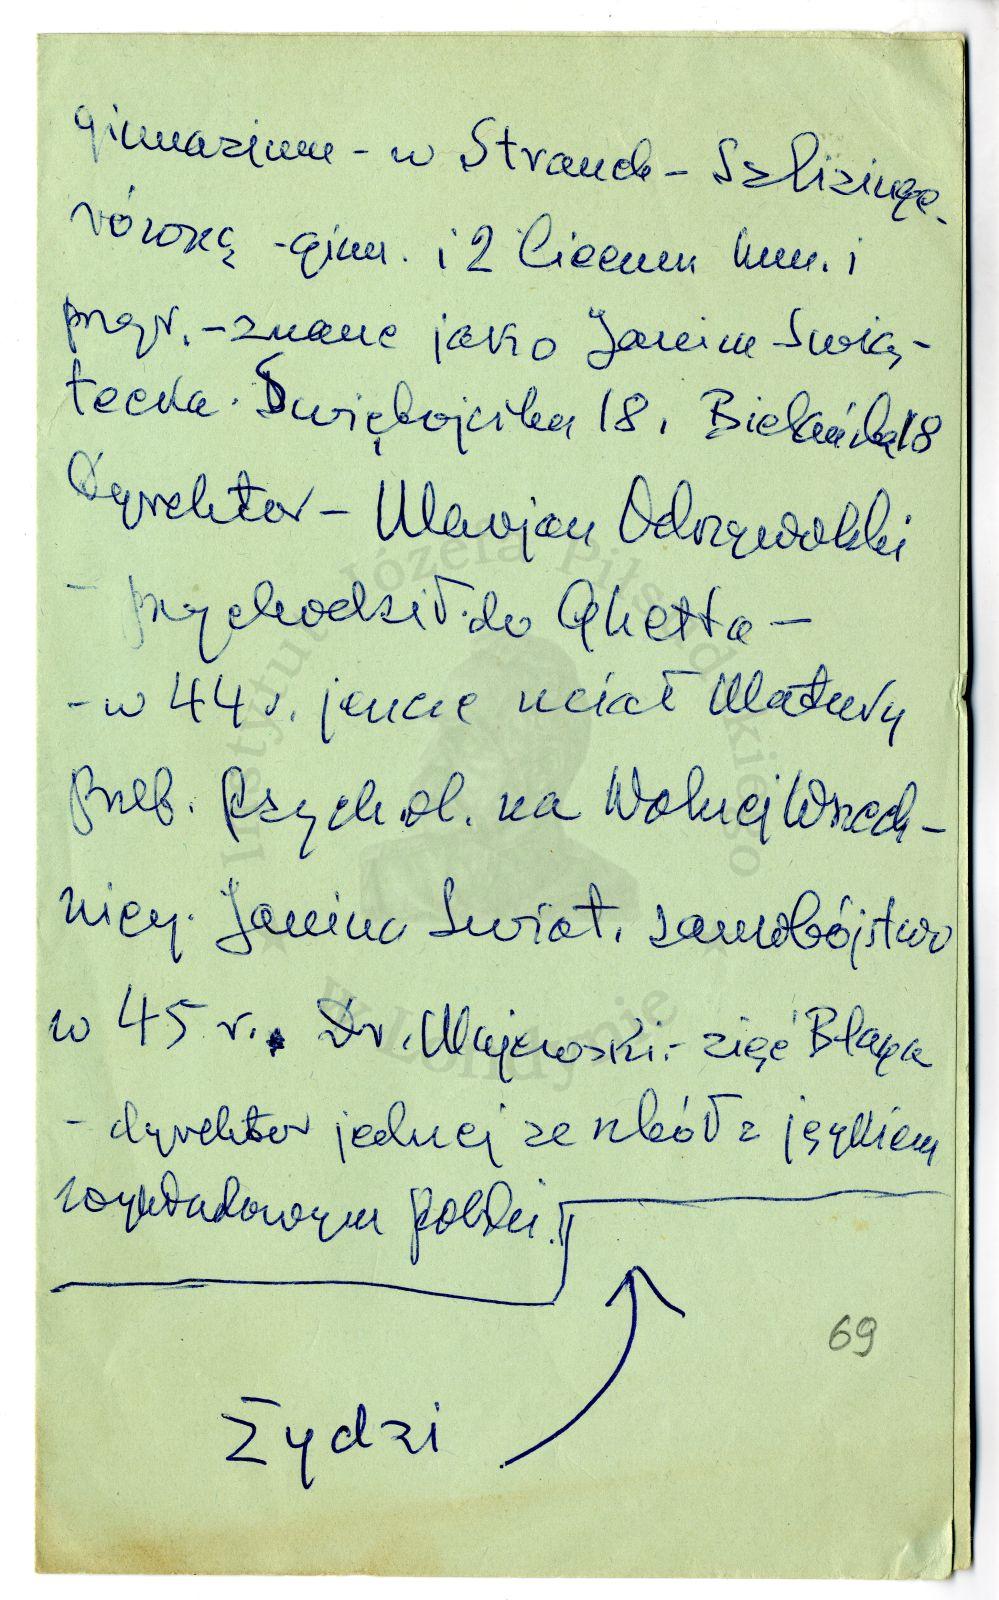 gimnazium - w Strauch - Szlizingę.
różową - gim. i 2 liceum hum. i
przyr. - znane jako Janin Swią-
tecka. Świętojerska 18, Bielańska 18
Dyrektor - Marjan Odrzywolski
- przychodził do Ghetta -
- w 44 r. jeszcze miał Matury
Psychol. na Wolnej Wszech-
nicy. Janina Swiat. samobójstwo
w 45 r. Dr. Majewski - zięć
- dyrektor jednej ze szkół z językiem
wykładowym polski.
Żydzi
69
Instytut Józefa Piłsudskiego
w Londynie